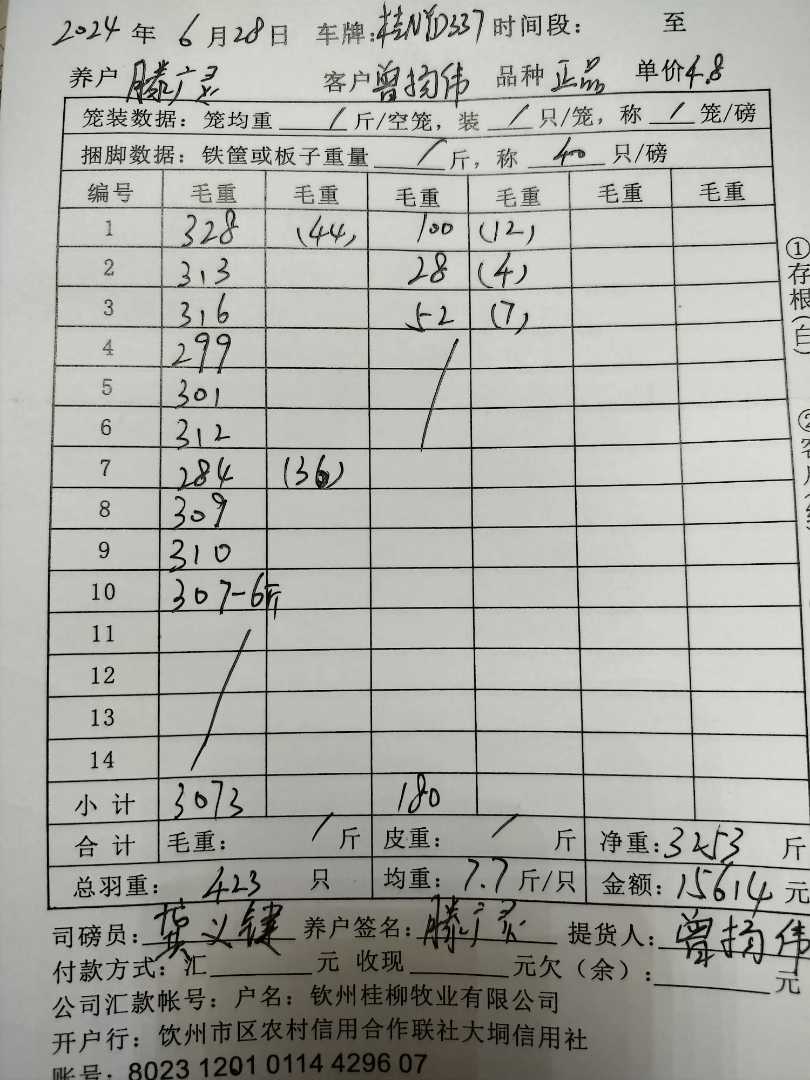 2024 年 6 月 28 日 车牌:桂NYD337 时间段: 至
养户 滕广灵 客户 曾扬伟 品种 正品 单价 4.8
笼装数据: 笼均重 / 斤/空笼, 装 / 只/笼, 称 / 笼/磅
捆脚数据: 铁筐或板子重量 / 斤, 称 40 只/磅
编号 毛重 毛重 毛重 毛重 毛重 毛重
1 328 (44) 100 (12)
2 313 28 (4)
3 316 52 (7)
4 299
5 301
6 312
7 284 (36)
8 309
9 310
10 307-6斤
11
12
13
14
小 计 3073 180
合 计 毛重: / 斤 皮重: / 斤 净重:3253 斤
总羽重: 423 只 均重: 7.7 斤/只 金额:15614 元
司磅员: 义键 养户签名: 滕广灵 提货人: 曾扬伟
付款方式: 汇 元 收现 元欠(余): 元
公司汇款帐号: 户名: 钦州桂柳牧业有限公司
开户行: 饮州市区农村信用合作联社大垌信用社
账号: 8023 1201 0114 4296 07
①存根(白)
②客